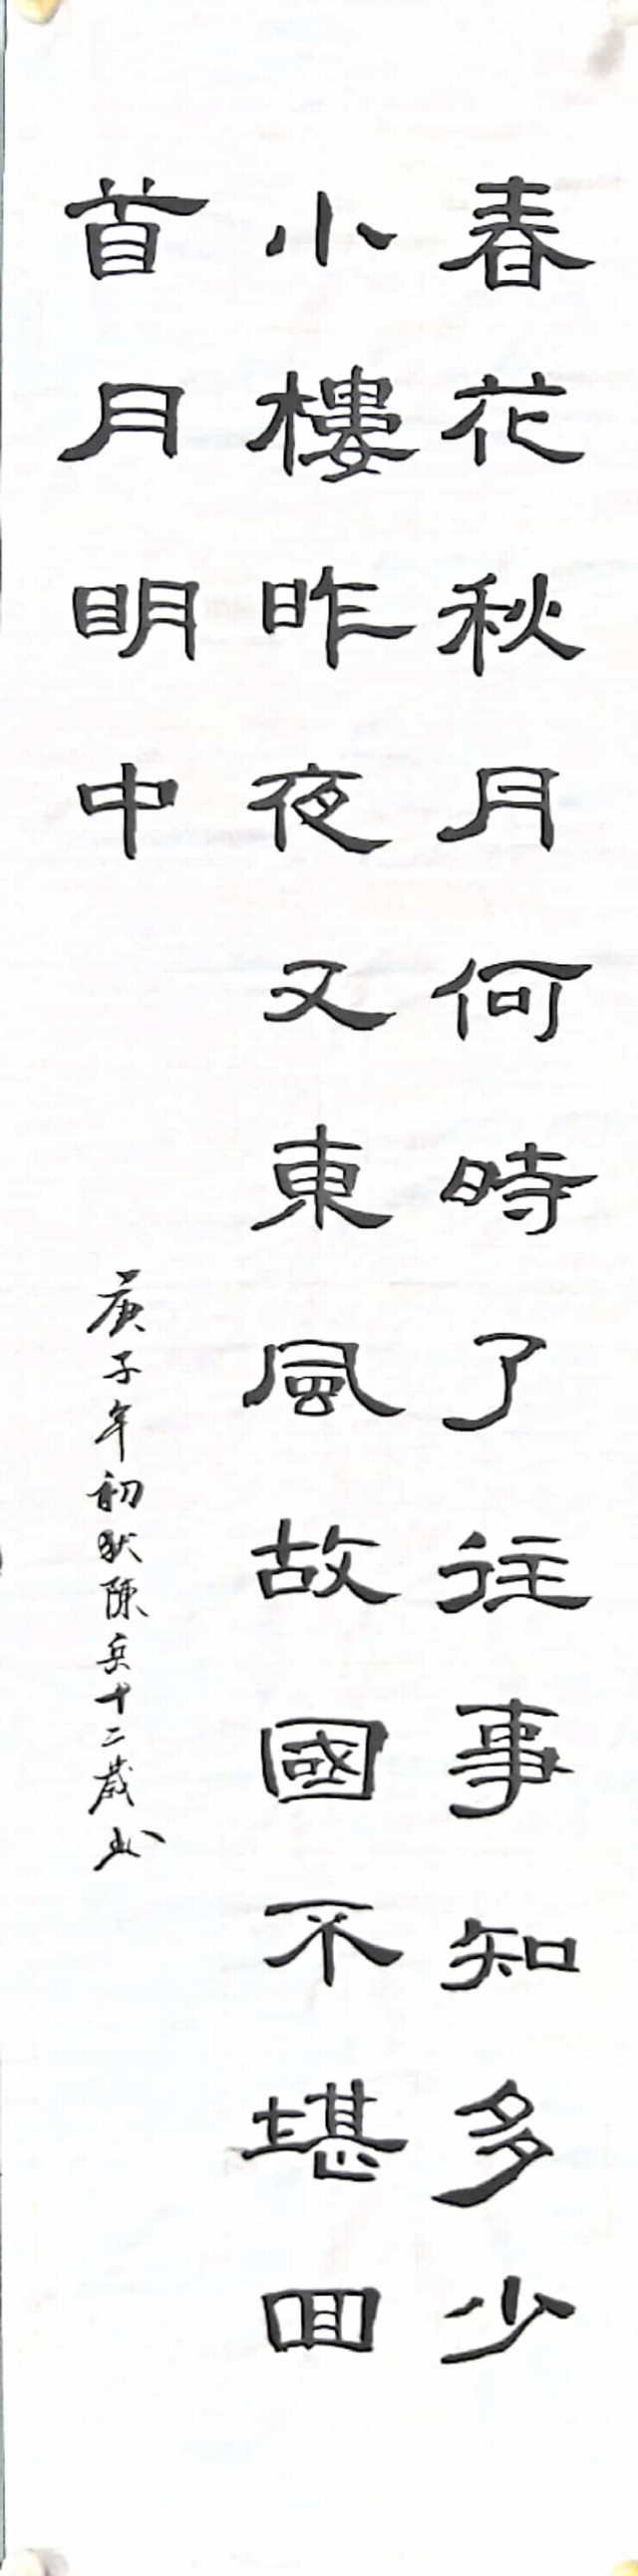 春花秋月何時了往事知多少
小樓昨夜又東風故國不堪回
首月明中
庚子年初秋陳兵十二歲书